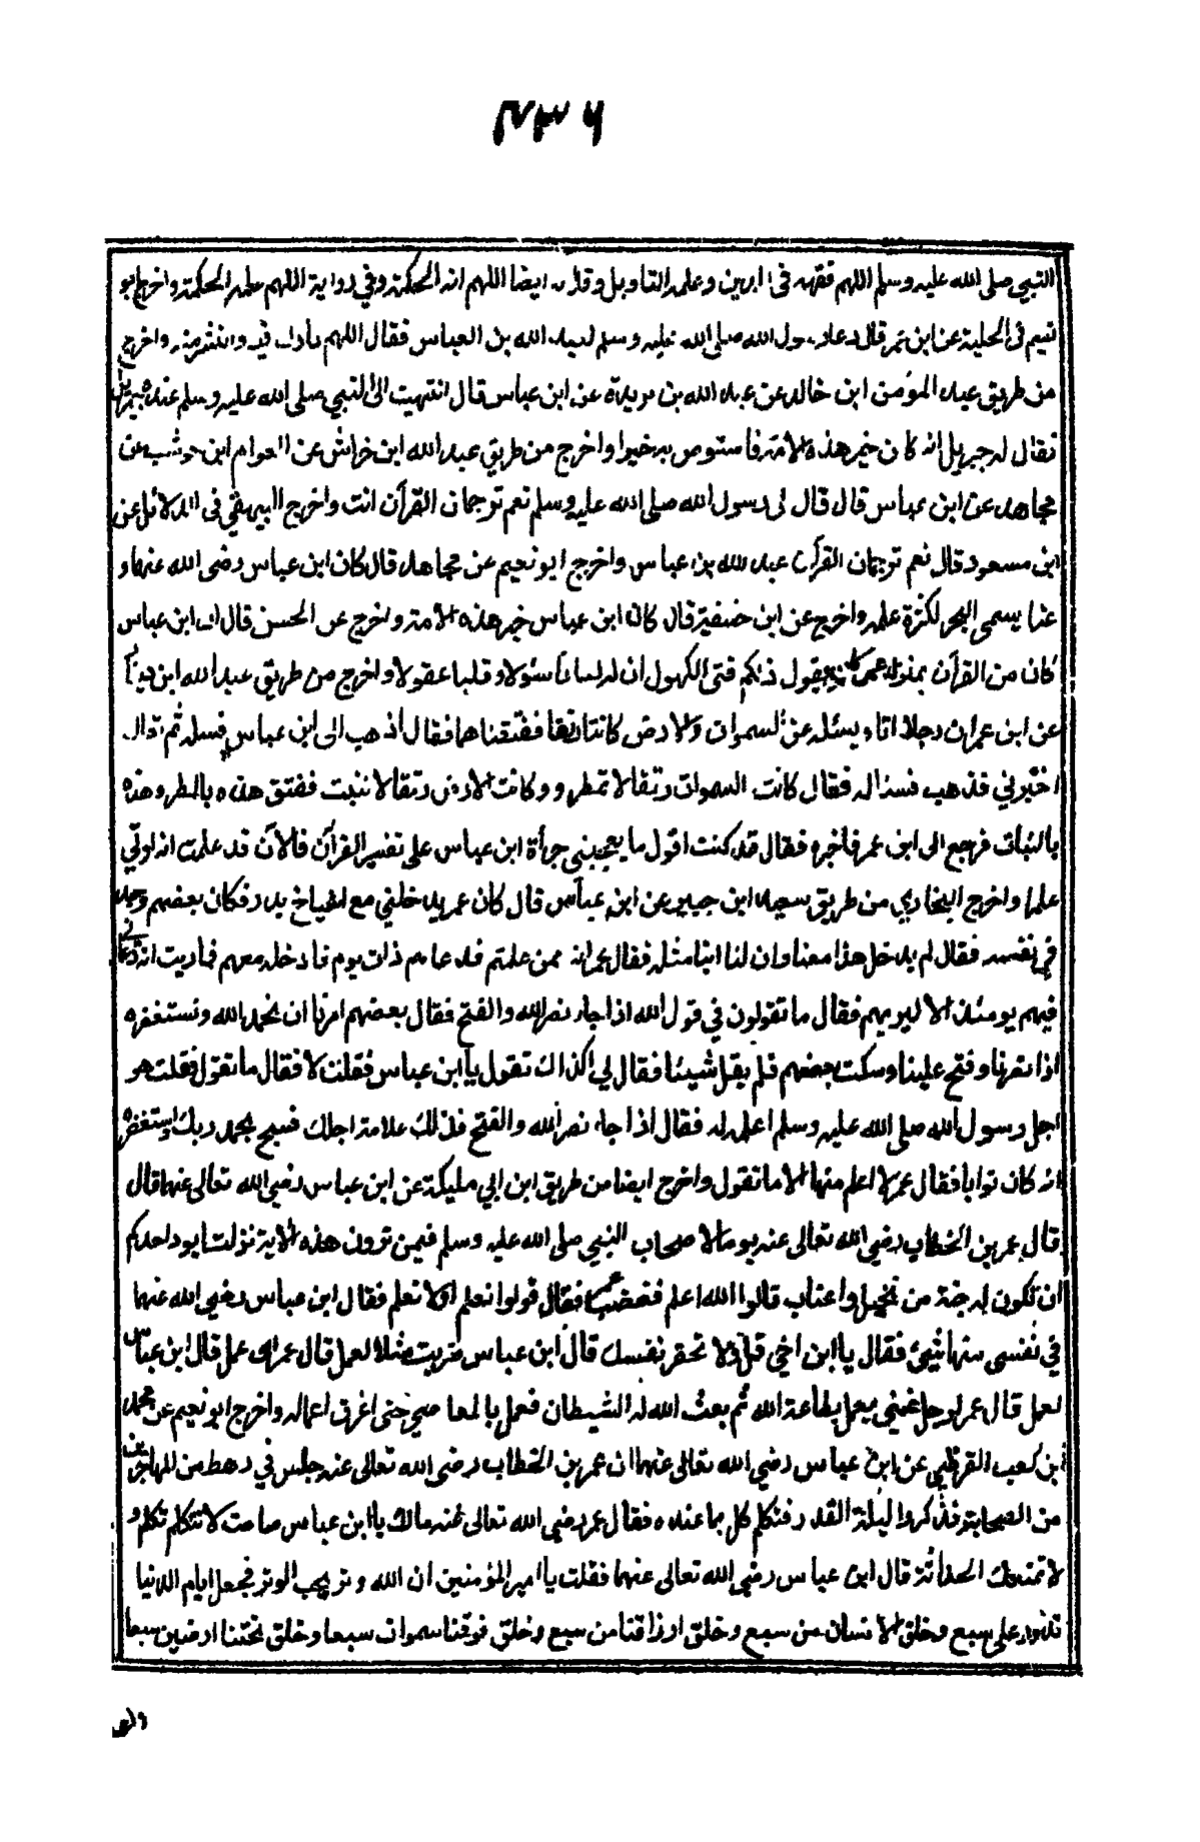 ۲۳۶
النبي صلى الله عليه وسلم اللهم فقهه في الدين وعلمه التاويل وقال له ايضا اللهم اته الحكمة وفي رواية اللهم علمه الحكمة واخرج ابو
نعيم فى الحلية عن ابن عمر قال دعا رسول الله صلى الله عليه وسلم لعبد الله بن العباس فقال اللهم بارك فيه وانشر منه واخرج
من طريق عبد المؤمن ابن خالد عن عبد الله بن بريدة عن ابن عباس قال انتهيت الى النبي صلى الله عليه وسلم عنده جبريل
فقال له جبريل انه كان خير هذه الامة فاستوص به خيرا واخرج من طريق عبد الله ابن خراش عن العوام ابن حوشب عن
مجاهد عن ابن عباس قال قال لى رسول الله صلى الله عليه وسلم نعم ترجمان القرآن انت واخرج البيهقي فى الدلائل عن
ابن مسعود قال نعم ترجمان القرآن عبد الله بن عباس واخرج ابو نعيم عن مجاهد قال كان ابن عباس رضى الله عنهما و
عنا يسمى البحر لكثرة علمه واخرج عن ابن حنفية قال كان ابن عباس خير هذه الامة واخرج عن الحسن قال ان ابن عباس
كان من القرآن بمنزلة عمر كان يقول ذلكم فتى الكهول ان له لسانا سئولا وقلبا عقولا واخرج من طريق عبد الله ابن دينار
عن ابن عمر ان رجلا اتاه يسئله عن السموات والارض كانتا رتقا ففتقناهما فقال اذهب الى ابن عباس فسله ثم تعال
اخبرني فذهب فساله فقال كانت السموات رتقا لا تمطر و وكانت الارض رتقا لا تنبت ففتق هذه بالمطر وهذه
بالنبات فرجع الى ابن عمر فاخبره فقال قد كنت اقول ما يعجبني جرأة ابن عباس على تفسير القرآن فالآن قد علمت انه اوتي
علما واخرج البخاري من طريق سعيد ابن جبير عن ابن عباس قال كان عمر يدخلني مع اشياخ بدر فكان بعضهم وجد
في نفسه فقال لم يدخل هذا معنا وان لنا ابنا مثله فقال عمر انه ممن علمتم فدعاهم ذات يوم فادخله معهم فما ريت انه دعاني
فيهم يومئذ الا ليريهم فقال ما تقولون في قول الله اذا جاء نصر الله والفتح فقال بعضهم امرنا ان نحمد الله ونستغفره
اذا نصرنا وفتح علينا وسكت بعضهم فلم يقل شيئا فقال لي اكذاك تقول يا ابن عباس فقلت لا فقال ما تقول فقلت هو
اجل رسول الله صلى الله عليه وسلم اعلمه له فقال اذا جاء نصر الله والفتح فذلك علامة اجلك فسبح بحمد ربك واستغفره
انه كان توابا فقال عمر لا اعلم منها الا ما تقول واخرج ايضا من طريق ابن ابي مليكة عن ابن عباس رضي الله تعالى عنها قال
قال عمر بن الخطاب رضي الله تعالى عنه يوما لاصحاب النبي صلى الله عليه وسلم فيمن ترون هذه الاية نزلت ايود احدكم
ان تكون له جنة من نخيل واعناب قالوا الله اعلم فغضب عمر فقال قولوا نعلم اولا نعلم فقال ابن عباس رضي الله عنهما
في نفسي منها شيئ فقال يا ابن اخي قل ولا تحقر نفسك قال ابن عباس ضربت مثلا لعمل قال عمر اى عمل قال ابن عباس
لعمل قال عمر لرجل غني يعمل بطاعة الله ثم بعث الله له الشيطان فعمل بالمعاصي حتى اغرق اعماله واخرج ابو نعيم عن محمد
ابن كعب القرظي عن ابن عباس رضي الله تعالى عنهما ان عمر بن الخطاب رضى الله تعالى عنه جلس في رهط من المهاجرين
من الصحابة فذكروا ليلة القدر فتكلم كل بما عنده فقال عمر رضي الله تعالى عنه مالك يا ابن عباس صامت لا تتكلم تكلم و
لا تمنعك الحداثة قال ابن عباس رضي الله تعالى عنهما فقلت يا امير المؤمنين ان الله وتر يحب الوتر فجعل ايام الدنيا
تدور على سبع وخلق الانسان من سبع وخلق ارزاقنا من سبع وخلق فوقنا سموات سبعا وخلق تحتنا ارضين سبعا